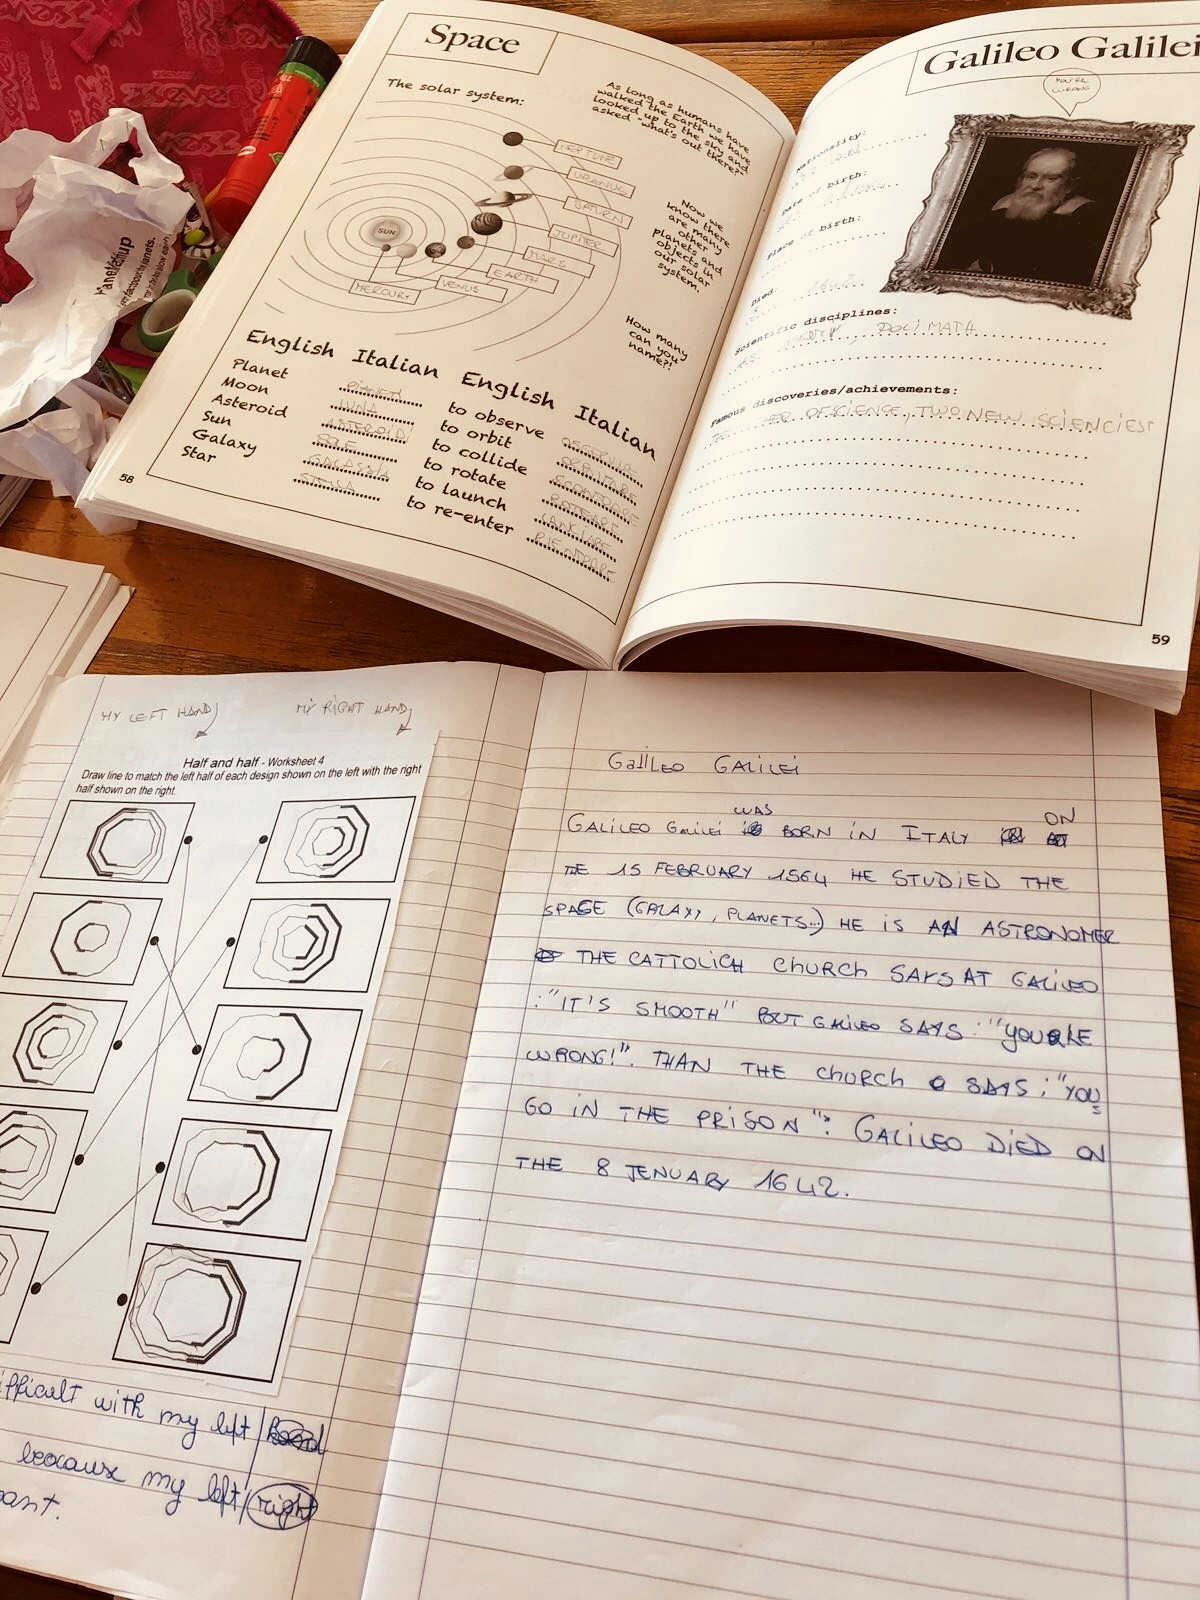 Space
The solar system:
As long as humans have
walked the Earth we have
looked up to the sky and
asked "what's out there?"
NEPTUNE
URANUS
SATURN
JUPITER
MARS
EARTH
VENUS
MERCURY
SUN
Now we
know there
are many
other
planets and
objects in
our solar
system.
How many
can you
name?!
English Italian English Italian
Planet PIANETA to observe OSSERVARE
Moon LUNA to orbit ORBITARE
Asteroid ASTEROIDI to collide
Sun SOLE to rotate
Galaxy GALASSIA to launch LANCIARE
Star STELLA to re-enter RIENTRARE
58
Galileo Galilei
YOU'RE
WRONG
Nationality:
Date of birth:
Place of birth:
Died: 1642
Scientific disciplines:
POLIMATH
Famous discoveries/achievements:
OF SCIENCE, TWO NEW SCIENCIEST
59
MY LEFT HAND
MY RIGHT HAND
Half and half - Worksheet 4
Draw line to match the left half of each design shown on the left with the right
half shown on the right.
difficult with my left
because my left/right
Galileo GALILEI
GALILEO GALILEI WAS BORN IN ITALY ON
THE 15 FEBRUARY 1564 HE STUDIED THE
SPACE (GALAXY, PLANETS...) HE IS AN ASTRONOMER
THE CATTOLICH CHURCH SAYS AT GALILEO
:"IT'S SMOOTH" BUT GALILEO SAYS: "YOU ARE
WRONG!". THAN THE CHURCH SAYS: "YOU
GO IN THE PRISON". GALILEO DIED ON
THE 8 JENUARY 1642.